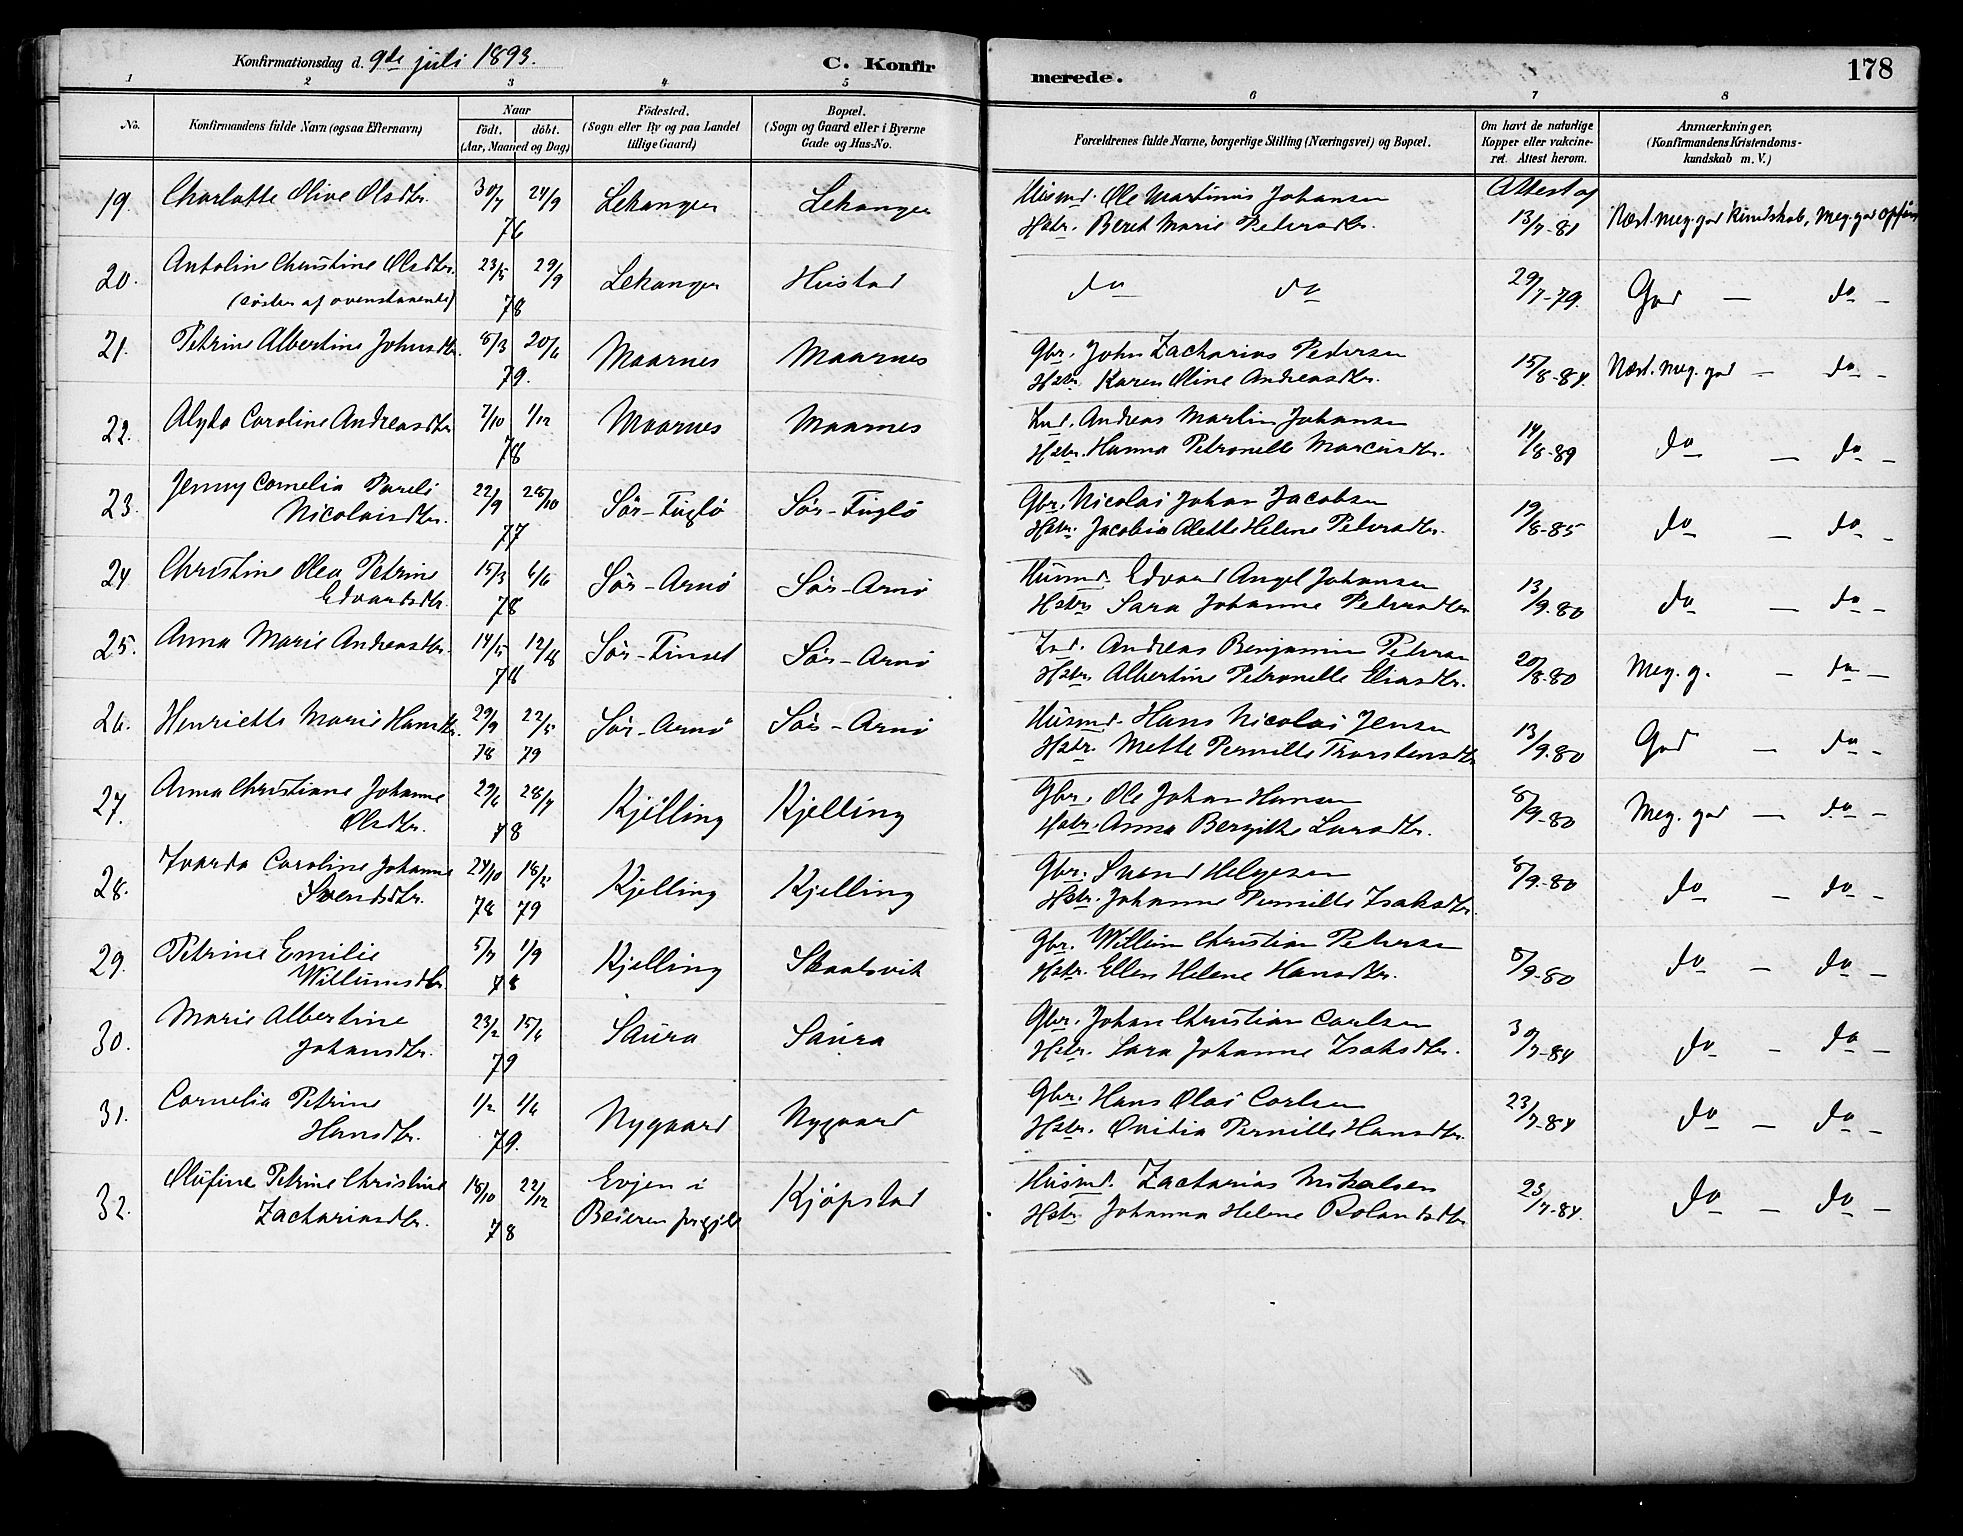 Konfirmationsdag d. 9de juli 1893.
C. Konfirmerede.
178
1 2 3 4 5 6 7 8
No.
Konfirmandens fulde Navn (ogsaa Efternavn)
Naar
födt. döbt.
(Aar, Maaned og Dag)
Födested.
(Sogn eller By og paa Landet
tillige Gaard)
Bopæl.
(Sogn og Gaard eller i Byerne
Gade og Hus-No.
Forældrenes fulde Navne, borgerlige Stilling (Næringsvei) og Bopæl.
Om havt de naturlige
Kopper eller vakcine-
ret. Attest herom.
Anmærkninger.
(Konfirmandens Kristendoms-
kundskab m. V.)
19. Charlotte Olive Olsdtr. 30/7 24/9 76 Lekanger Lekanger
Husmd. Ole Martinus Johansen
Hstr. Beret Marie Pedersdtr.
Attest af 13/7-81 Næst. meg. god Kundskab, Meg. god opførs
20. Antoline Christine Olsdtr. 23/5 29/9 78 Lekanger Hustad
(søster af ovenstaaende)
do do 29/7-79. God — do —
21. Petrine Albertine Johnsdtr. 8/3 20/6 79. Maarnes Maarnes
Gbr. John Zacharias Pedersen
Hstr. Karen Oline Andreasdtr.
15/8-84. Næst. meg. god — do —
22. Alyda Caroline Andreasdtr. 7/10 1/12 78 Maarnes Maarnes
Ind. Andreas Martin Johansen
Hstr. Hanna Petronelle Marcusdtr.
14/8-89 do — do —
23. Jenny Cornelia Pareli
Nicolaisdtr. 22/9 28/10 77 Sör-Fuglö Sör-Fuglö
Gbr. Nicolai Johan Jacobsen
Hstr. Jacobia Alette Helene Pedersdtr.
19/8-85 do — do —
24 Christine Olea Petrine
Edvardsdtr. 15/3 6/6 78 Sör-Arnö Sör-Arnö
Husmd. Edvard Angel Johansen
Hstr. Sara Johanne Pedersdtr.
13/9.80 do — do —
25. Anna Marie Andreasdtr. 14/5 12/8 78 Sör-Finset Sör-Arnö
Ind. Andreas Benjamin Petersen
Hstr. Albertine Petronelle Eliasdtr.
20/8-80 Meg. g. — do —
26. Henriette Marie Hansdtr. 29/9 22/5 78 79 Sör-Arnö Sör-Arnö
Husmd. Hans Nicolai Jensen
Hstr. Mette Pernille Thorstensdtr
13/9.80 God — do —
27. Anna Christiane Johanne
Olsdtr. 29/6 28/7 78 Kjelling Kjelling
Gbr. Ole Johan Hansen
Hstr. Anna Bergithe Larsdtr.
8/9-80 Meg. god — do —
28. Ivarda Caroline Johanne
Svendsdtr. 24/10 18/5 78 79 Kjelling Kjelling
Gbr. Svend Helgesen
Hstr. Johanne Pernille Isaksdtr.
8/9-80 do — do —
29. Petrine Emilie
Willumsdtr. 5/7 1/9 78 Kjelling Skaalsvik
Gbr. Willum Christian Petersen
Hstr. Ellen Helene Hansdtr.
8/9-80 do — do —
30. Marie Albertine
Johansdtr. 23/2 15/6 79 Saura Saura
Gbr. Johan Christian Carlsen
Hstr. Sara Johanne Isaksdtr.
30/7-84 do — do —
31. Cornelia Petrine
Hansdtr. 1/2 1/6 79. Nygaard Nygaard
Gbr. Hans Olai Carlsen
Hstr. Ovidia Pernille Hansdtr.
23/7-84 do — do —
32. Olufine Petrine Christine
Zachariasdtr. 18/10 22/12 78 Evjen i
Beieren prgjld Kjöpstad
Husmd. Zacharias Mikalsen
Hstr. Johanna Helene Rolandsdtr
23/7-84. do — do —